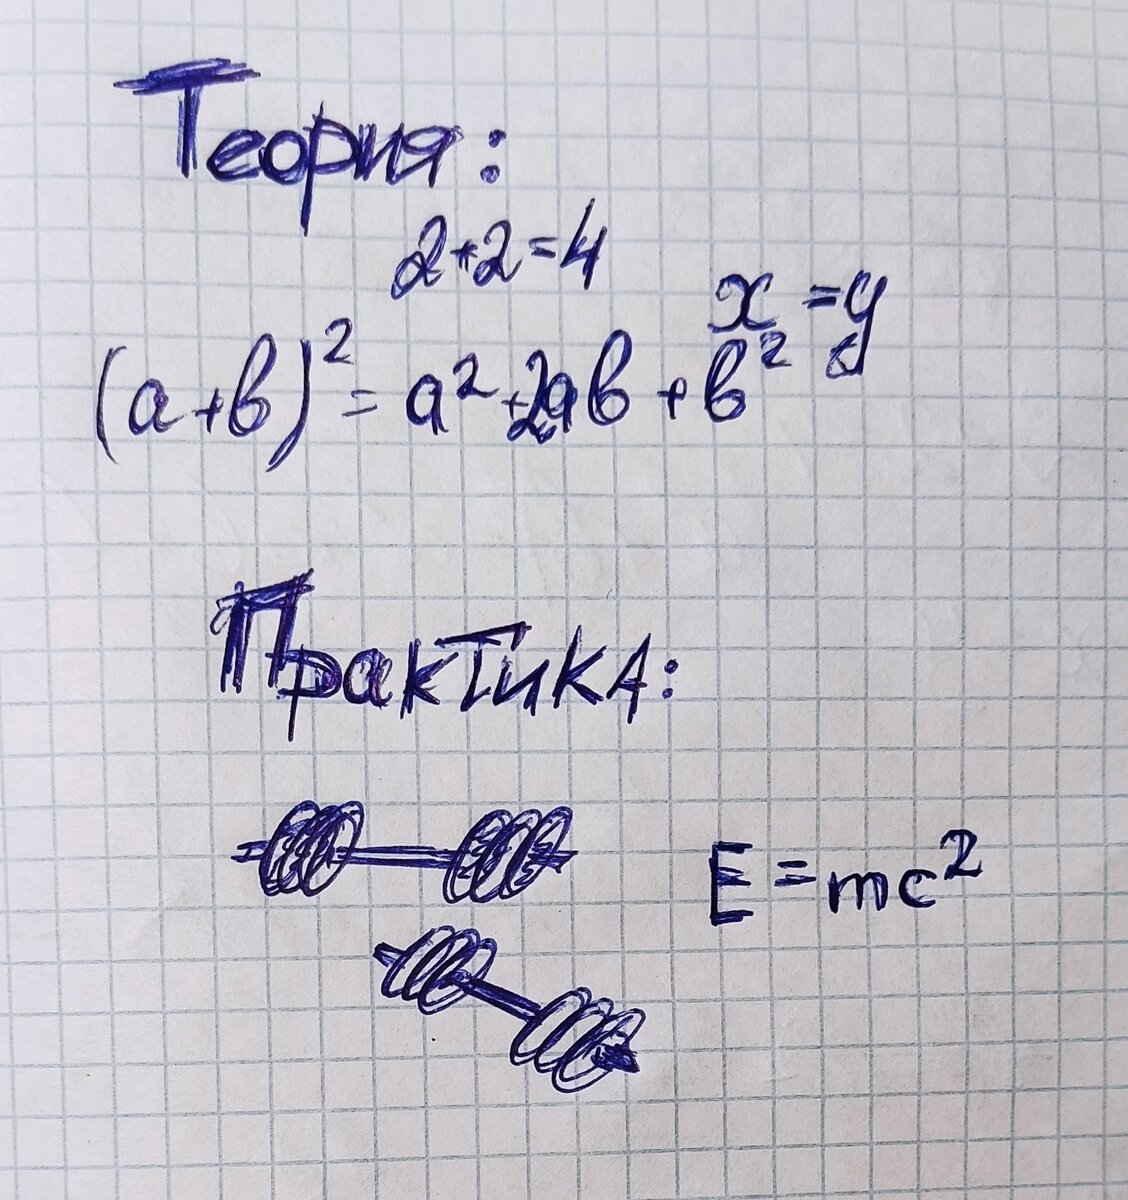 Теория:
2+2=4
x=y
(a+в)²=a²+2aв+в²
Практика:
E=mc²